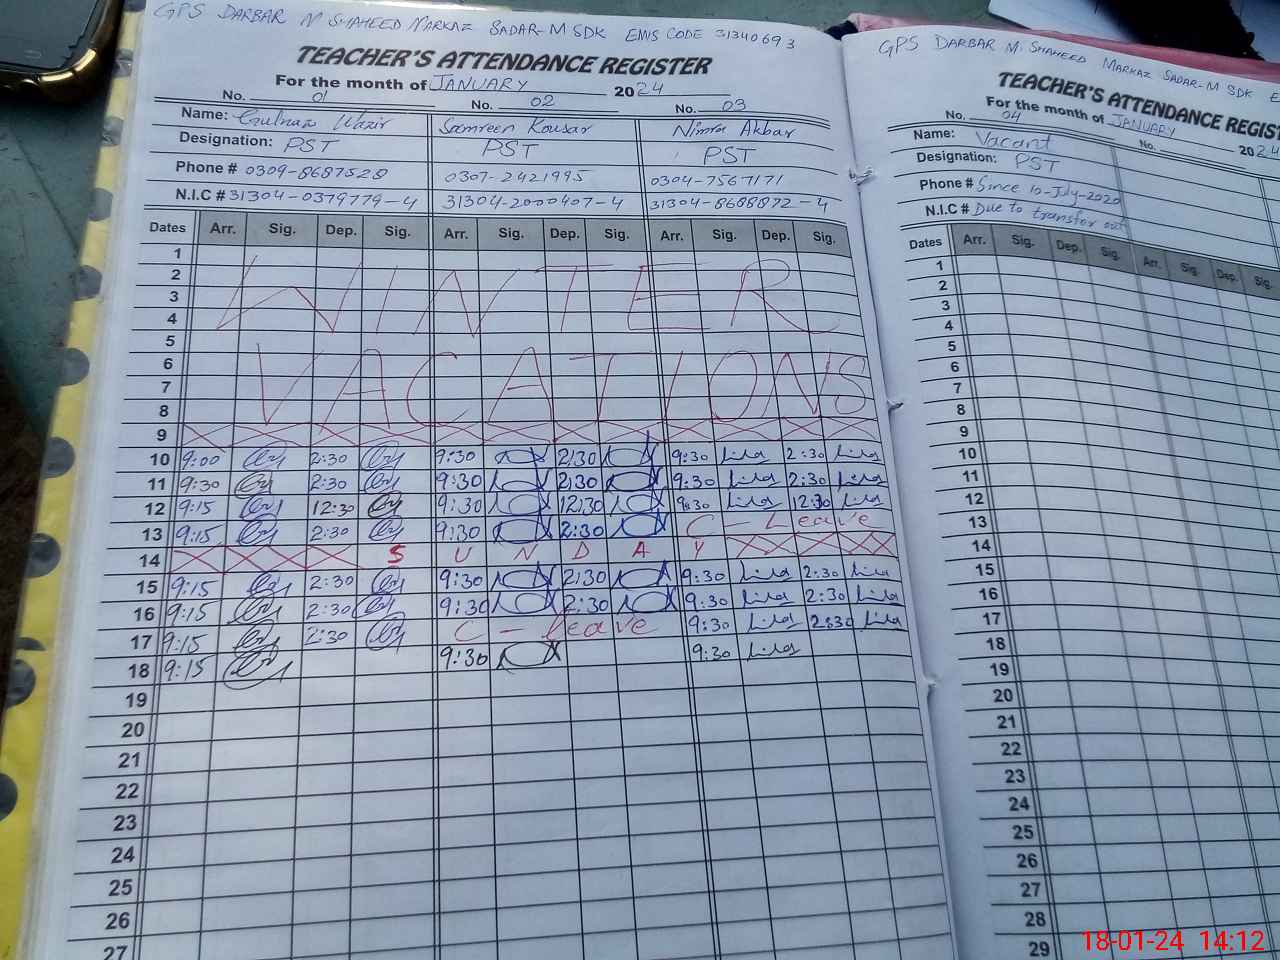 GPS DARBAR M SHAHEED MARKAZ SADAR-M SDK EMIS CODE 31340693
TEACHER'S ATTENDANCE REGISTER
For the month of JANUARY 2024
No. 01 No. 02 No. 03
Name: Gulnaz Wazir Samreen Kousar Nimra Akbar
Designation: PST PST PST
Phone # 0309-8687528 0307-2421995 0304-7567171
N.I.C # 31304-0379779-4 31304-2000407-4 31304-8688872-4
Dates Arr. Sig. Dep. Sig. Arr. Sig. Dep. Sig. Arr. Sig. Dep. Sig.
1
2
3
4
WINTER
5
6
7
8
VACATIONS
9
10 9:00 2:30 9:30 2:30 9:30 2:30
11 9:30 2:30 9:30 2:30 9:30 2:30
12 9:15 12:30 9:30 12:30 9:30 12:30
13 9:15 2:30 9:30 2:30 C - Leave
14 S U N D A Y
15 9:15 2:30 9:30 2:30 9:30 2:30
16 9:15 2:30 9:30 2:30 9:30 2:30
17 9:15 2:30 C - leave 9:30 2:30
18 9:15 9:30 9:30
19
20
21
22
23
24
25
26
27
GPS DARBAR M. SHAHEED MARKAZ SADAR-M SDK
TEACHER'S ATTENDANCE REGIST
For the month of JANUARY 202
No. 04 No.
Name: Vacant
Designation: PST
Phone # Since 10-July-2020
N.I.C # Due to transfer out
Dates Arr. Sig. Dep. Sig. Arr. Sig. Dep. Sig.
1
2
3
4
5
6
7
8
9
10
11
12
13
14
15
16
17
18
19
20
21
22
23
24
25
26
27
28
29
18-01-24 14:12